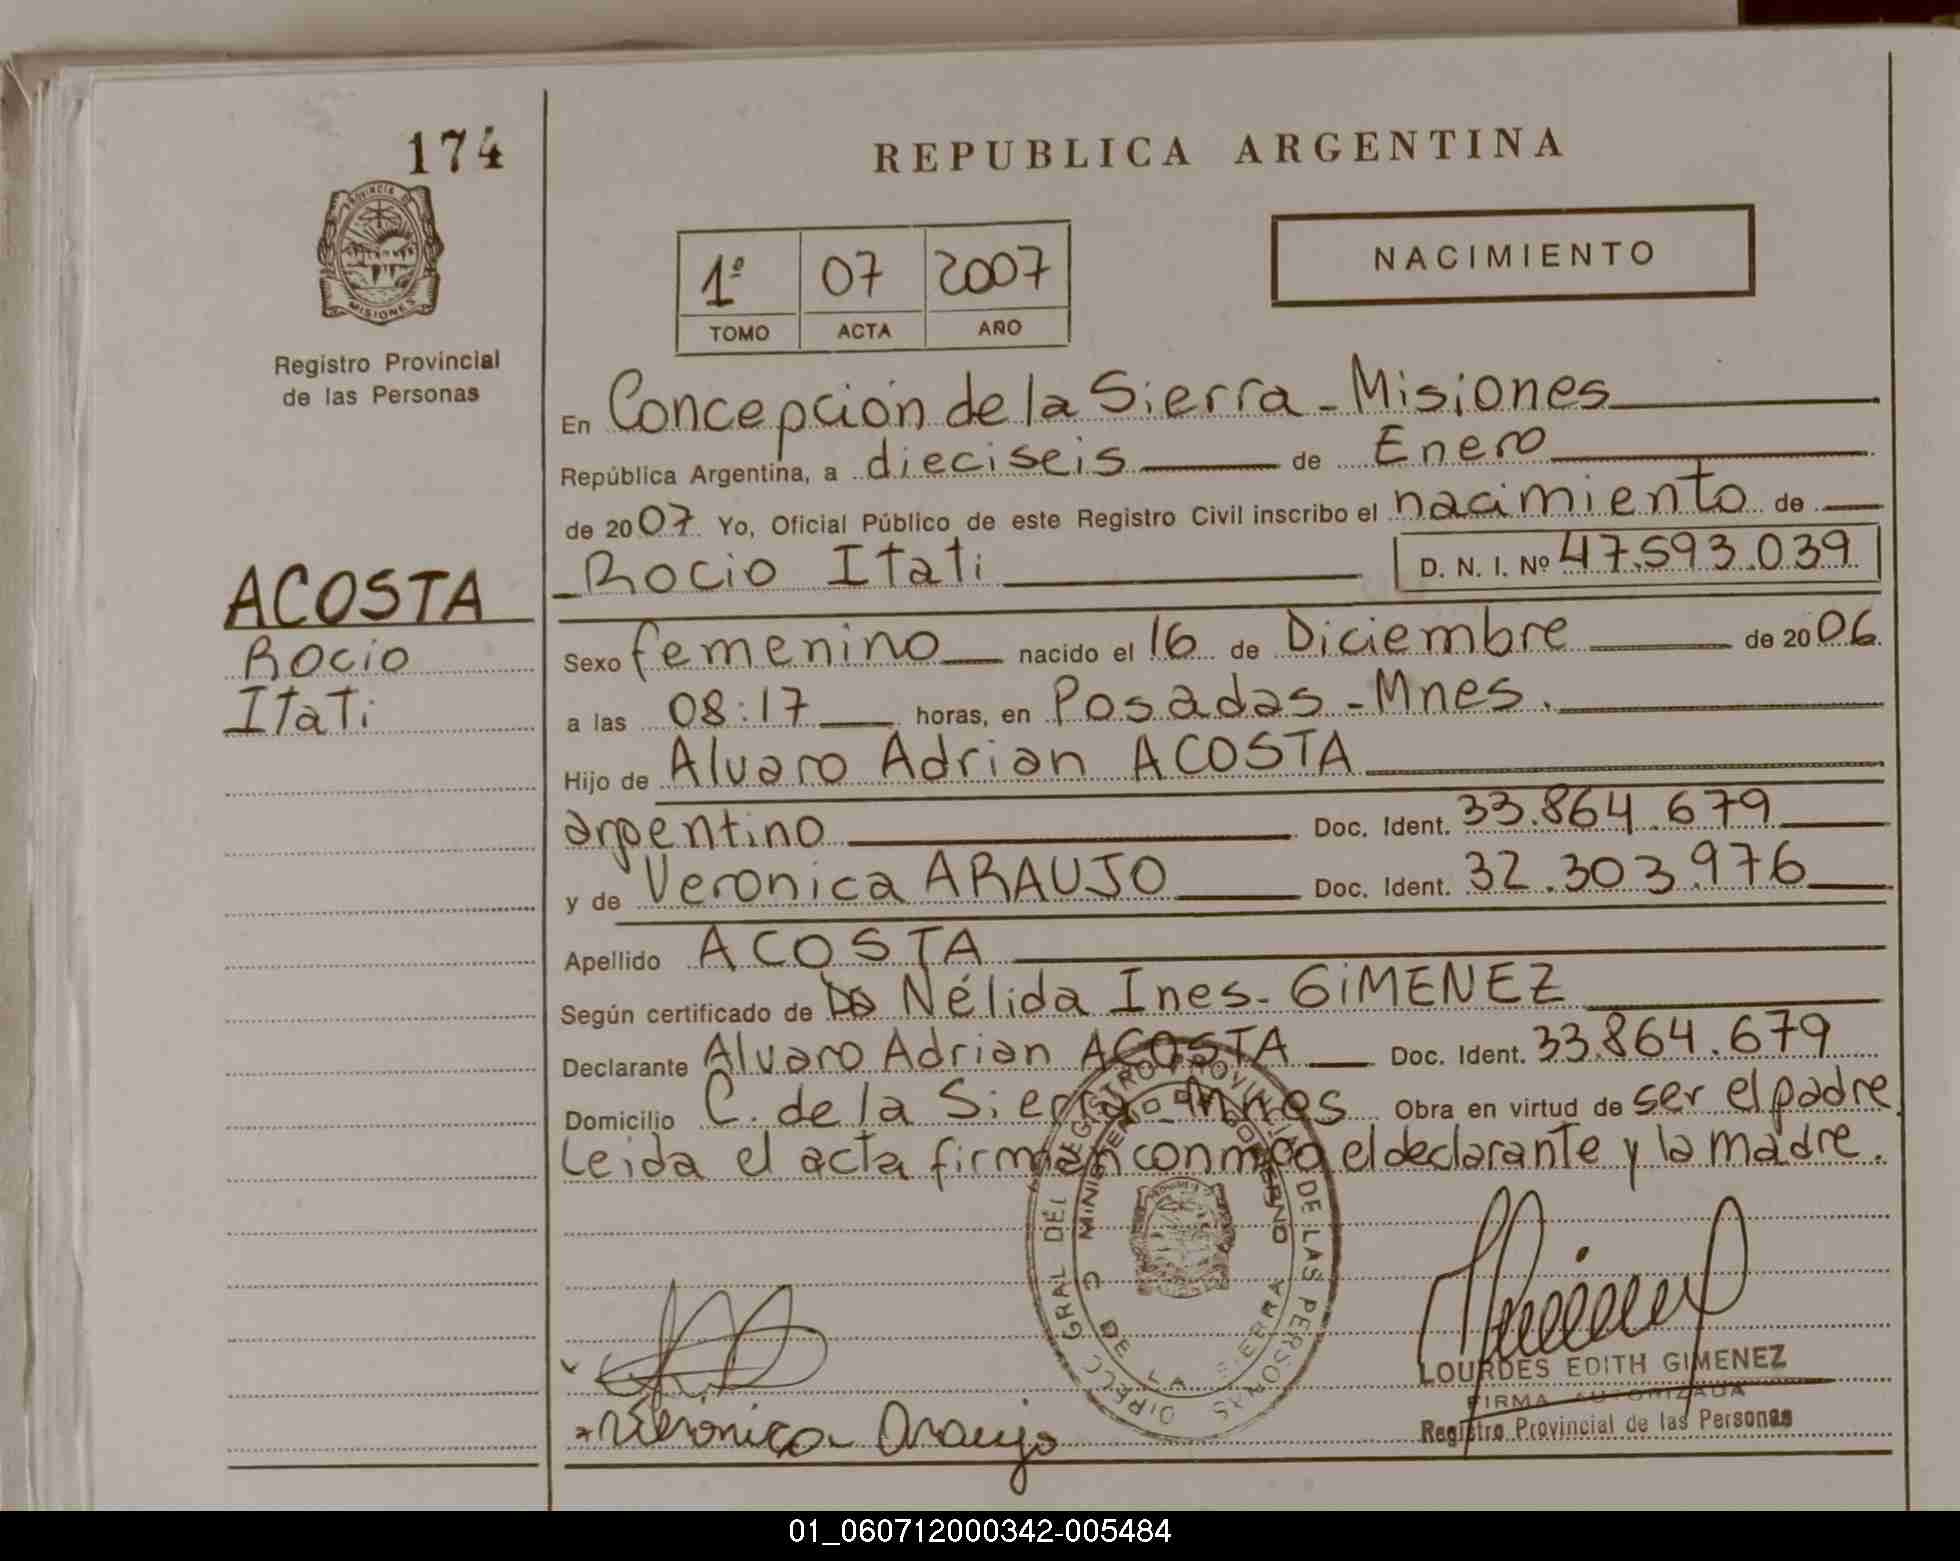 174
PROVINCIA DE
MISIONES
Registro Provincial
de las Personas
ACOSTA
Rocio
Itati
REPUBLICA ARGENTINA
1º 07 2007
TOMO ACTA AÑO
NACIMIENTO
En Concepción de la Sierra - Misiones
República Argentina, a dieciseis de Enero
de 2007 Yo, Oficial Público de este Registro Civil inscribo el nacimiento de
Rocio Itati D. N. I. Nº 47.593.039
Sexo femenino nacido el 16 de Diciembre de 2006.
a las 08:17 horas, en Posadas - Mnes.
Hijo de Alvaro Adrian ACOSTA
argentino Doc. Ident. 33.864.679
y de Veronica ARAUJO Doc. Ident. 32.303.976
Apellido ACOSTA
Según certificado de Nélida Ines - GIMENEZ
Declarante Alvaro Adrian ACOSTA Doc. Ident. 33.864.679
Domicilio C. de la Sierra - Mnes Obra en virtud de ser el padre
Leida el acta firman conmigo el declarante y la madre.
DIRECC GRAL DEL REGISTRO PROVINCIAL DE LAS PERSONAS
MINISTERIO DE GOBIERNO
C DE LA SIERRA
Verónica Araujo
LOURDES EDITH GIMENEZ
FIRMA AUTORIZADA
Registro Provincial de las Personas
01_060712000342-005484